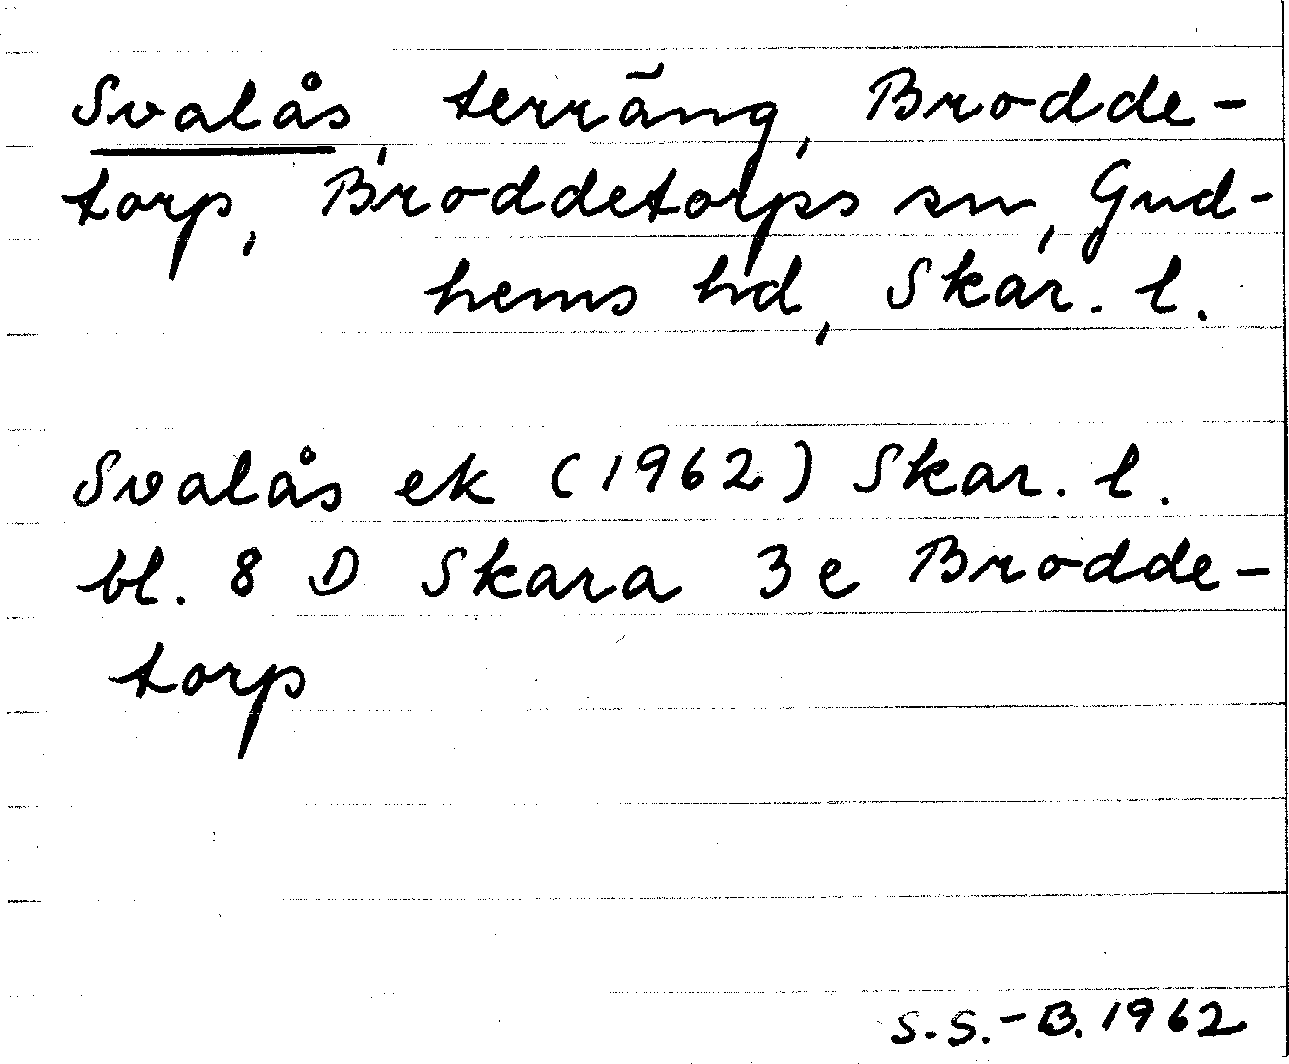 Svalås, terräng, Brodde-
torp, Broddetorps sn, Gud-
hems hd, Skar. l.
Svalås ek (1962) Skar. l.
bl. 8 D Skara 3 e Brodde-
torp
S.S.-B. 1962